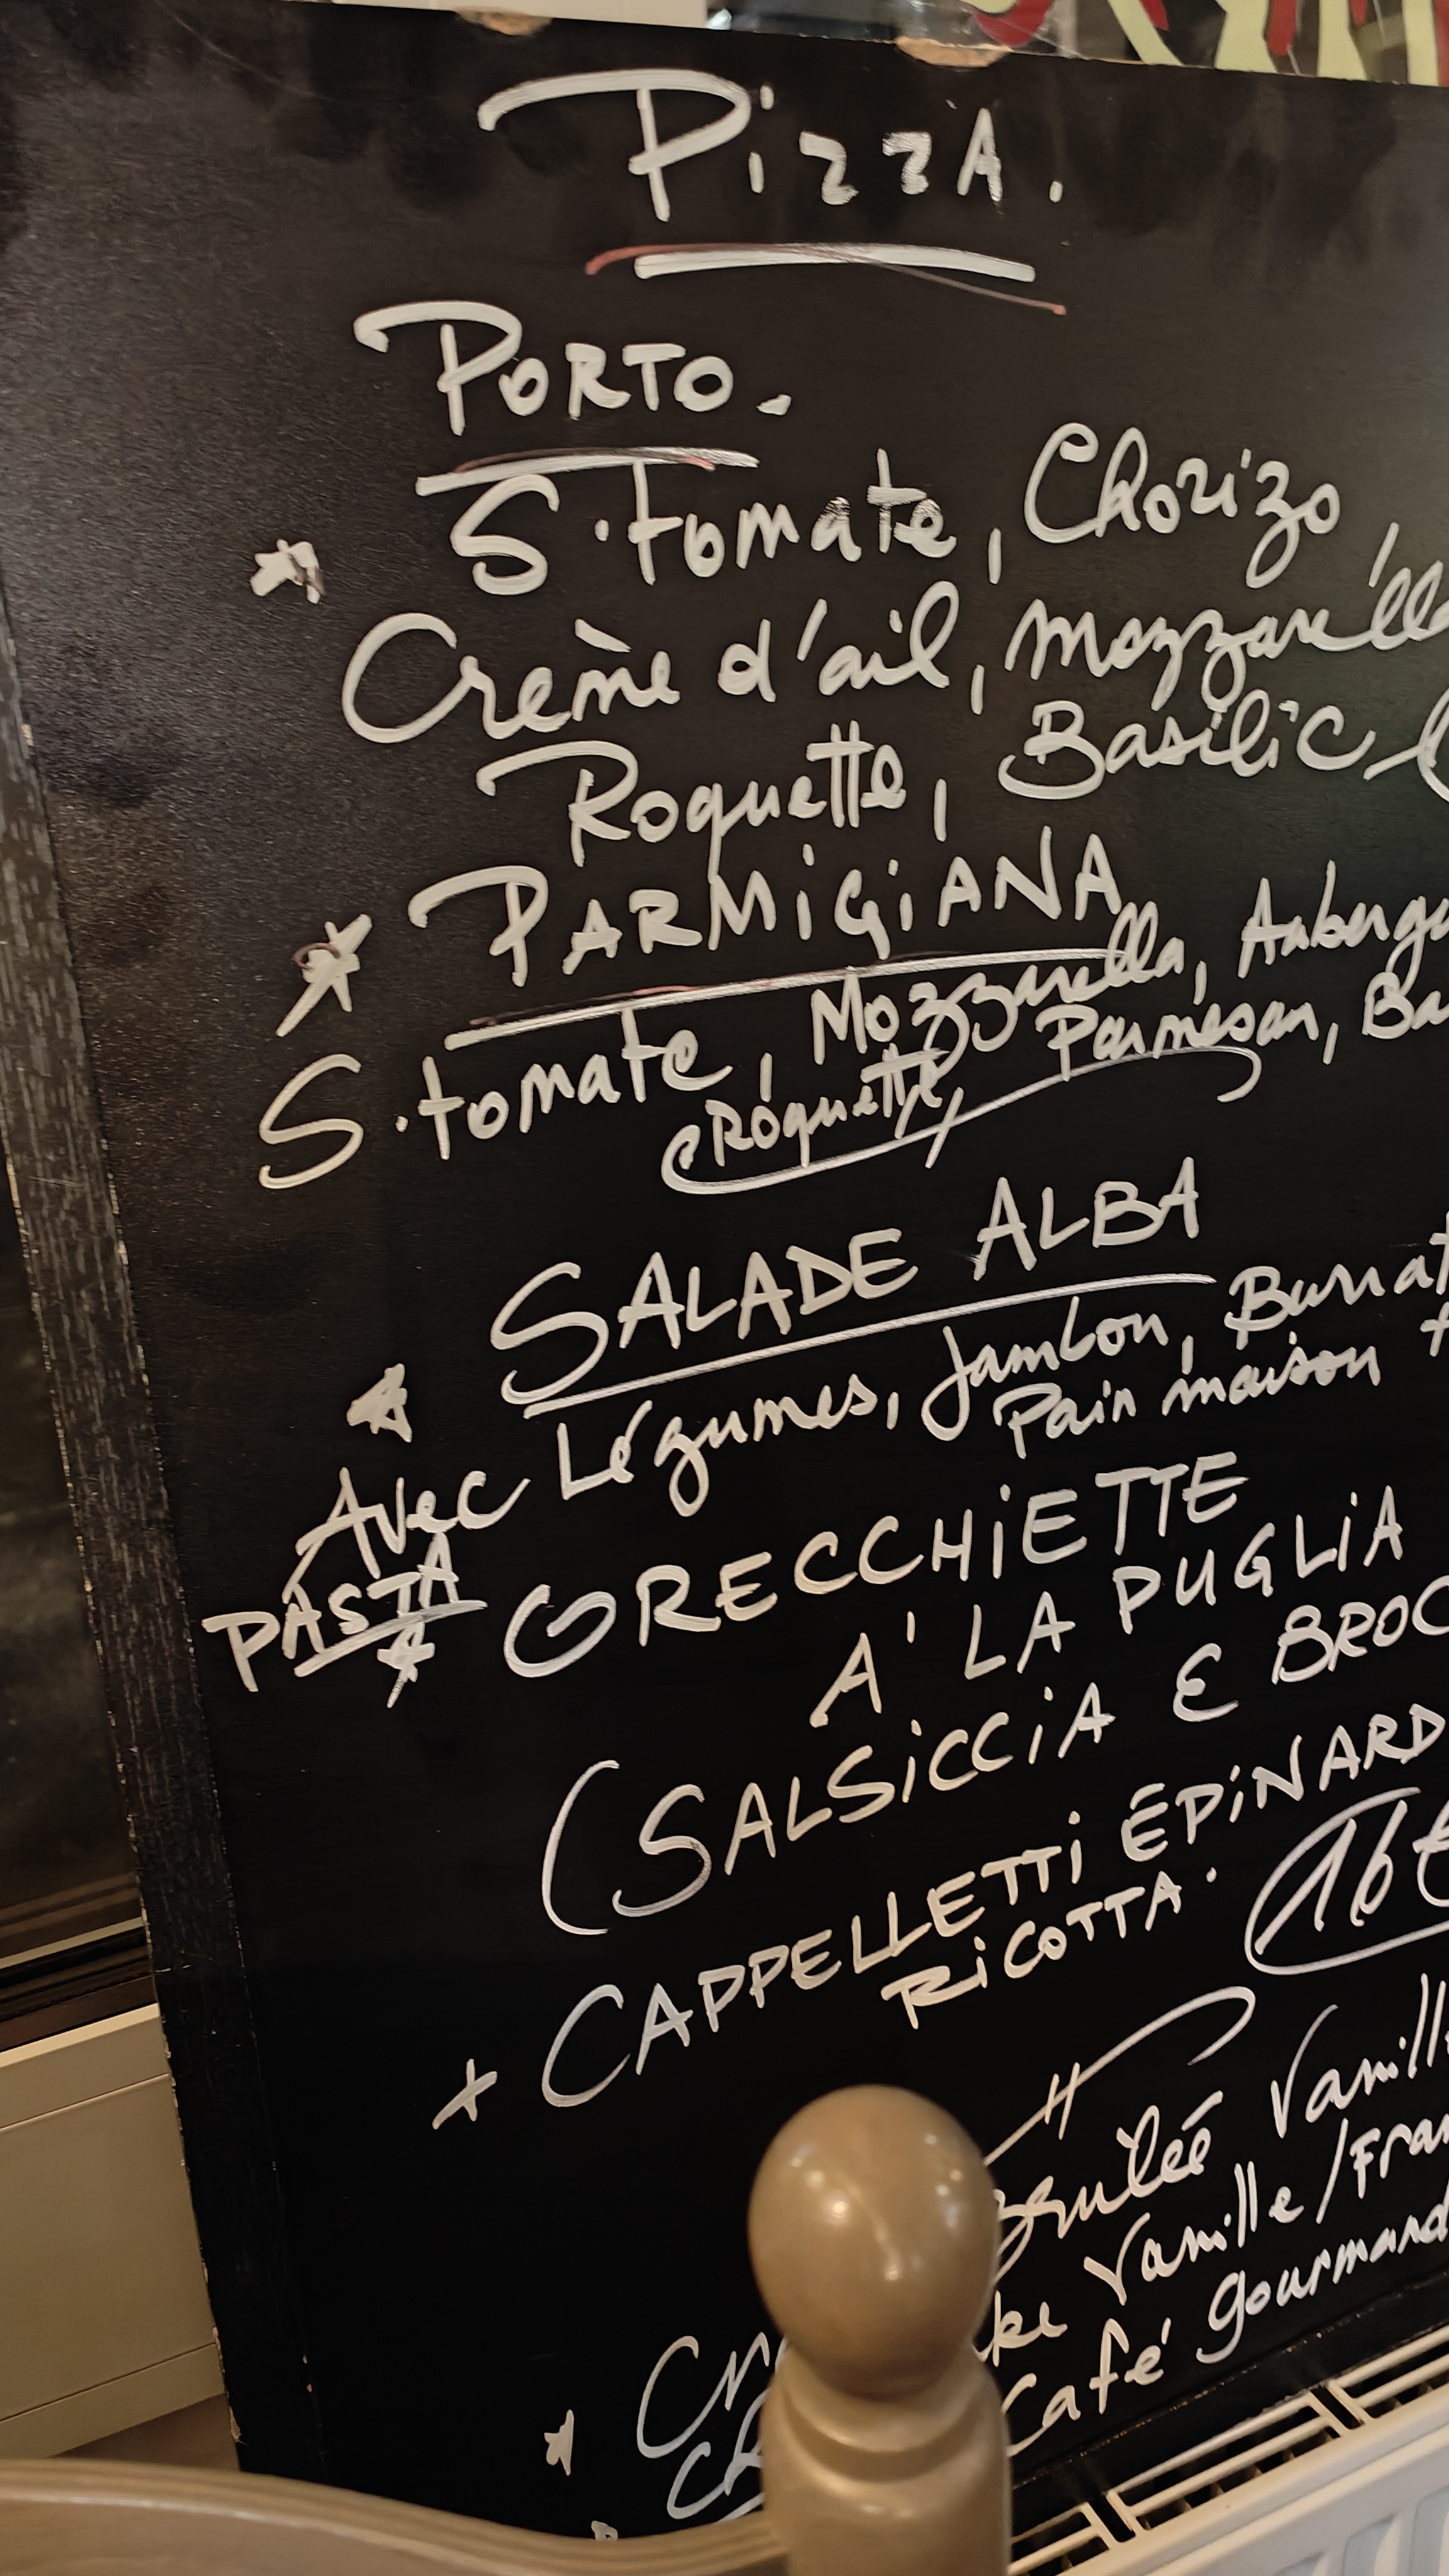 Pizza.
PORTO.
S.tomate, Chorizo,
Crème d'ail, mozzarella
Roquette, Basilic
PARMIGIANA
S.tomate, Mozzarella, Auberg
Roquette, Parmesan, Ba
SALADE ALBA
Avec Légumes, Jambon, Burrat
Pain maison
PASTA
ORECCHIETTE
A' LA PUGLIA
(SALSICCIA E BROC
+ CAPPELLETTI ÉPINARD
RICOTTA.
16€
brulée Vanill
ke Vanille/Fra
Café gourmand